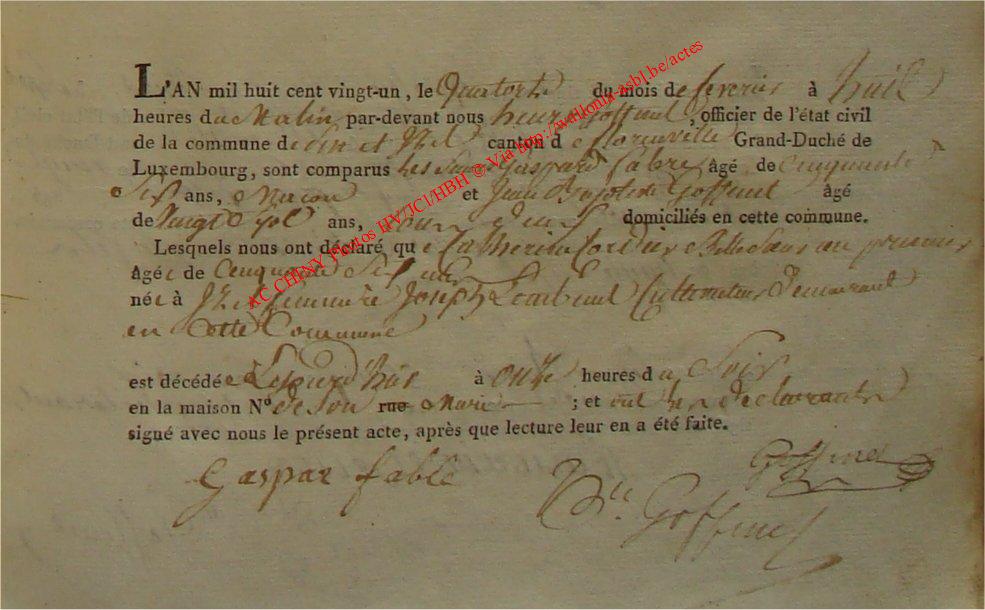 L'AN mil huit cent vingt-un, le Quatorze du mois de fevrier à huit
heures du Matin par-devant nous henri Goffinet, officier de l'état civil
de la commune de et Izel canton d e florenville Grand-Duché de
Luxembourg, sont comparus Les Sieurs Gaspard fabre âgé de Cinquante
Six ans, Macon et Jean Goffinet âgé
de Vingt ans, domiciliés en cette commune.
Lesquels nous ont déclaré qu e Catherine Cordier Belle Soeur au premier
âgé e de Cinquante Six ans
née à Izel femme de Joseph Cultivateur Demeurant
en Cette Commune
est décédé e Le jourd'hier à onze heures d u Soir
en la maison N° de Son rue Marie ; et ont les declarants
signé avec nous le présent acte, après que lecture leur en a été faite.
Gaspar fable
Goffinet
hri. Goffinet
AC CHINY Photos HV/JCl/HBH © Via http://wallonia-asbl.be/actes